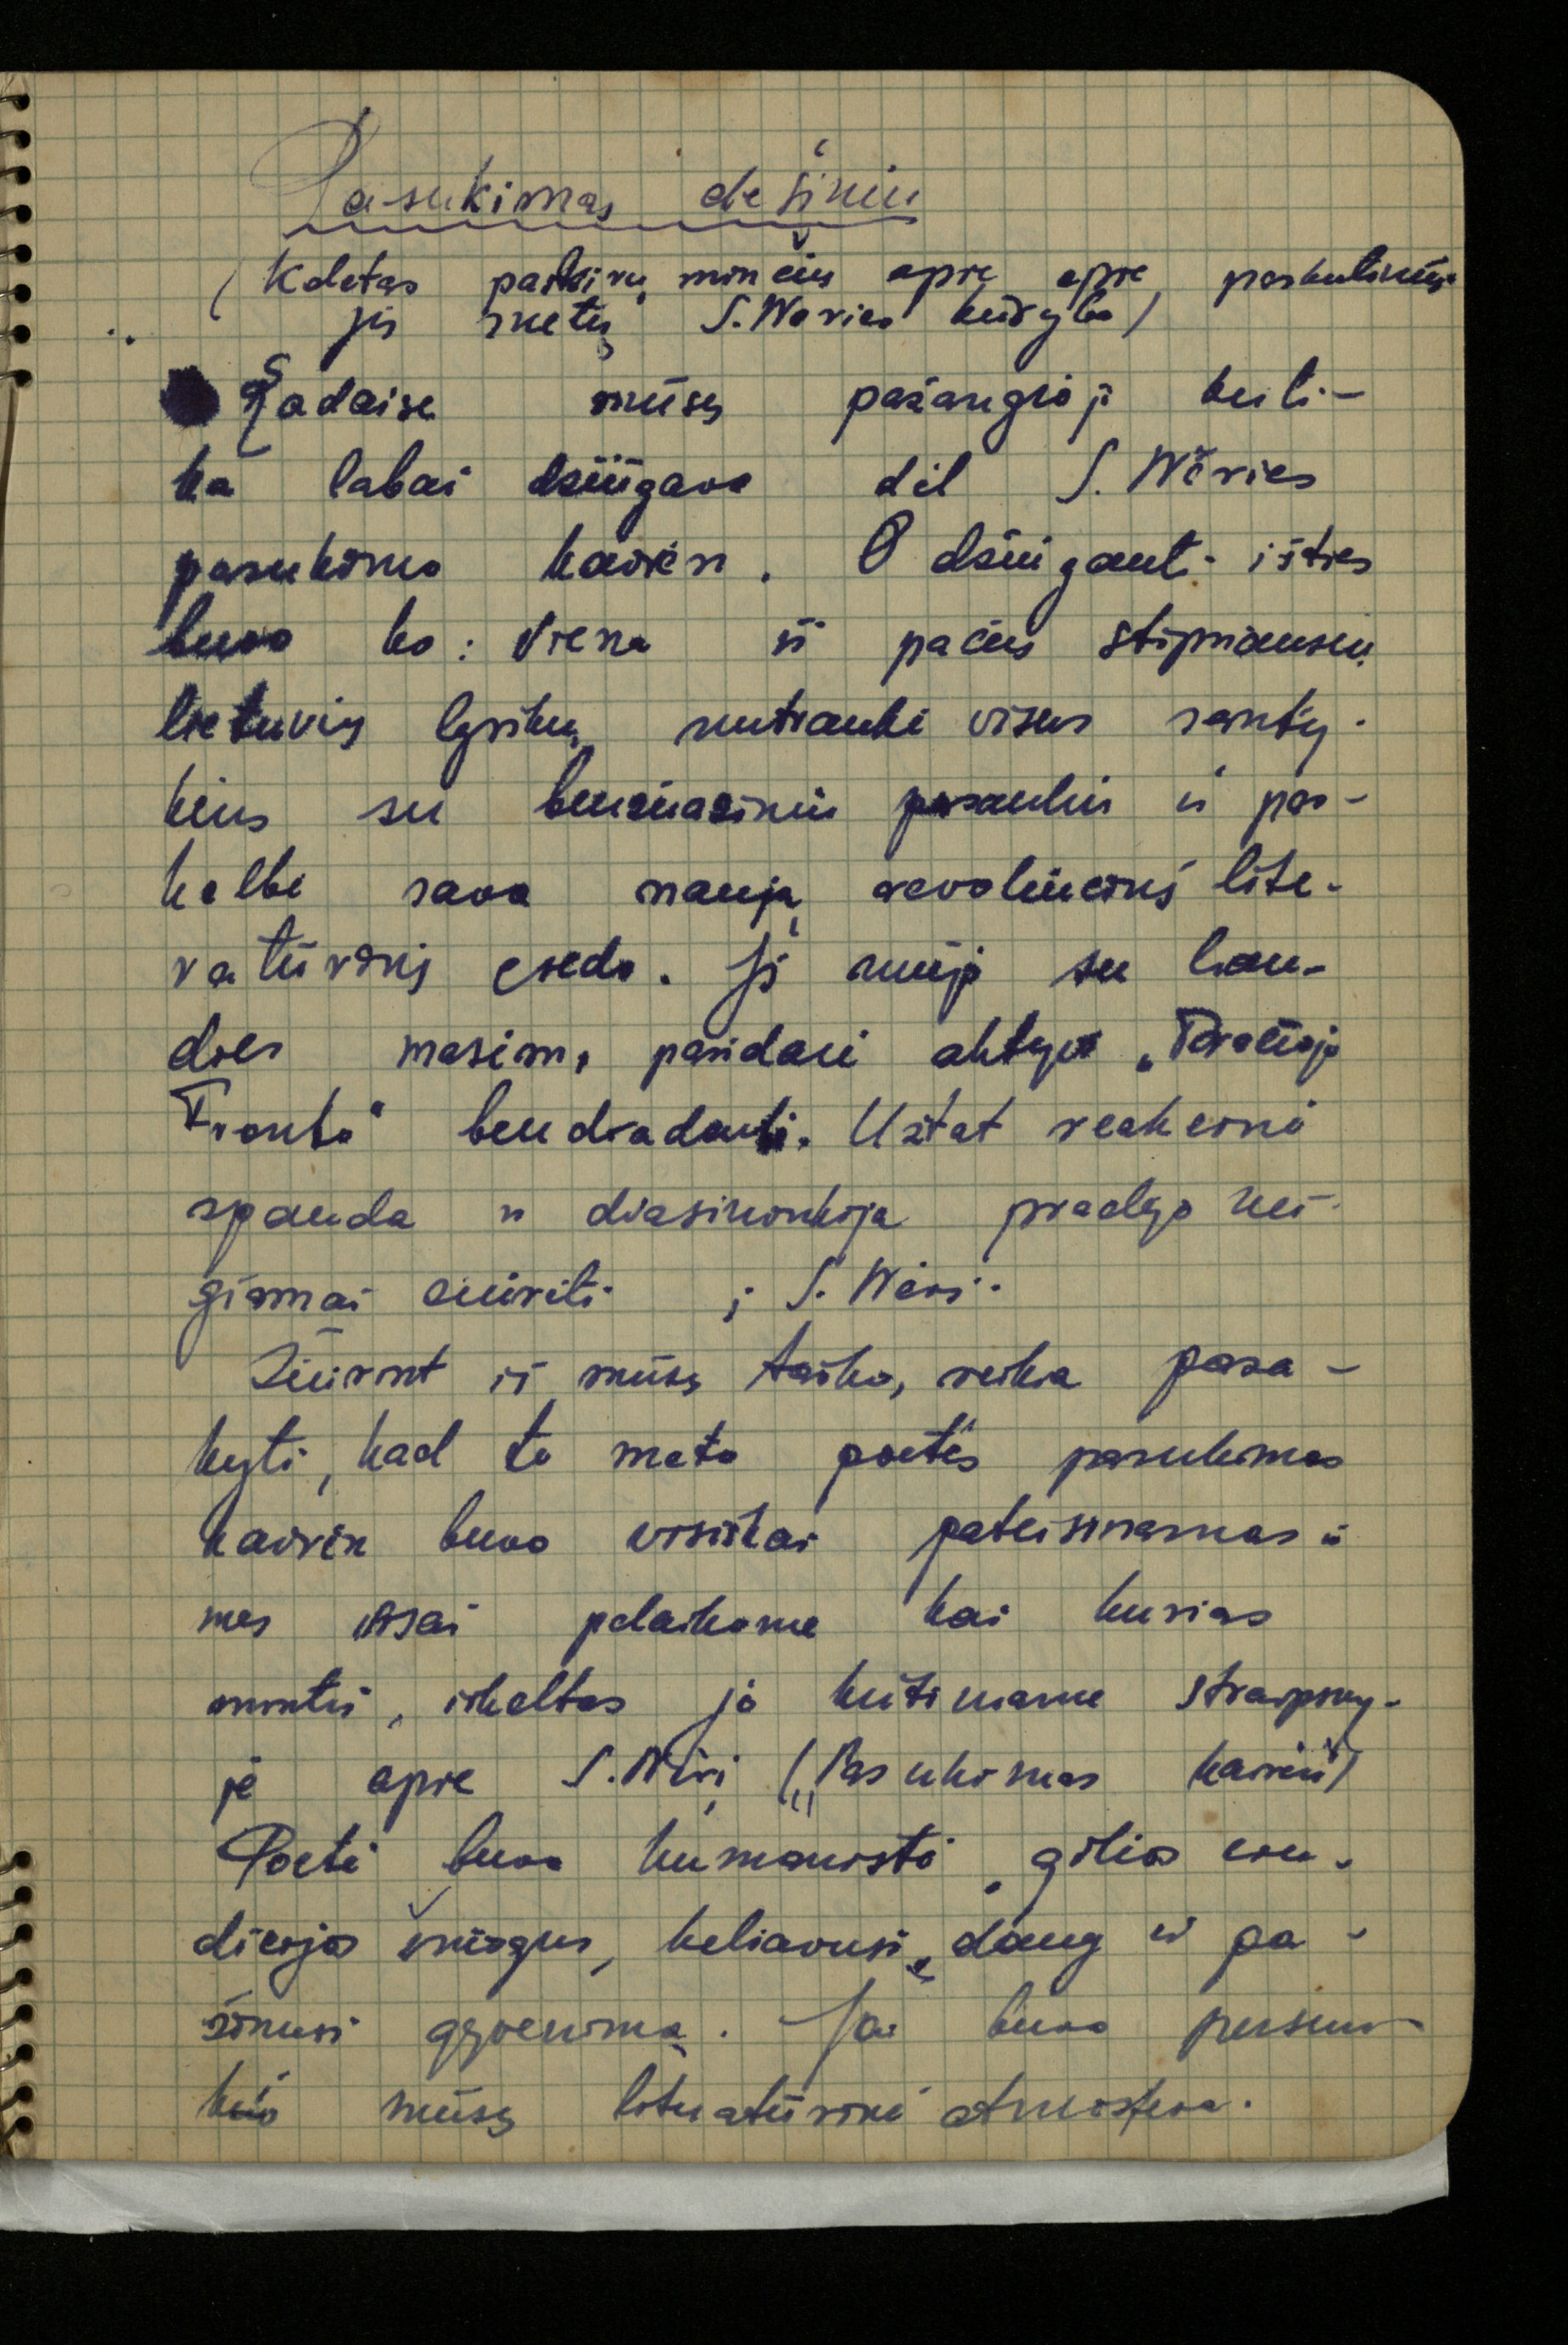 Pasukimas dešinėn
(Keletas padrikų minčių apie apie paskutiniųjų
jų metų S. Nėries kūrybą)
Kadaise mūsų pažangioji kriti-
ka labai džiūgavo dėl S. Nėries
pasukimo kairėn. O džiūgauti išties
buvo ko: viena iš pačių stipriausių
lietuvių lyrikų nutraukė visus santy-
kius su buržuaziniu pasauliu ir pas-
kelbė savo naują revoliucinį lite-
ratūrinį credo. Ji nuėjo su liau-
dies masėm, pasidarė aktyvi „Trečiojo
Fronto" bendradarbė. Užtat reakcinė
spauda ir dvasininkija pradėjo nei-
giamai žiūrėti į S. Nėrį.
Žiūrint iš mūsų taško, reikia pasa-
kyti, kad to meto poetės pasukimas
kairėn buvo visiškai pateisinamas ir
mes visai palaikome kai kurias
mintis, iškeltas jo kritiniame straipsny-
je apie S. Nėrį („Pasukimas kairėn")
Poetė buvo humanistė, gilios eru-
dicijos žmogus, keliavusi daug ir pa-
žinusi gyvenimą. Jai buvo persun-
kio mūsų literatūrinė atmosfera.